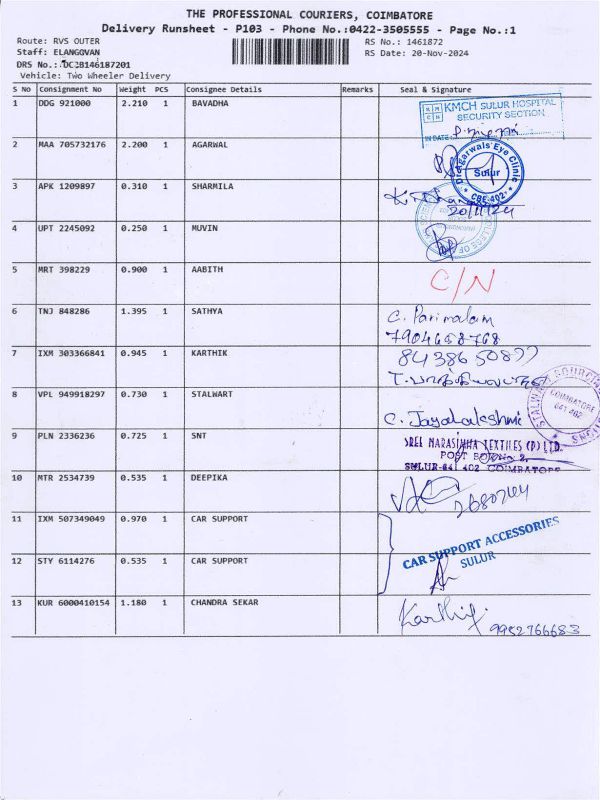 THE PROFESSIONAL COURIERS, COIMBATORE
Delivery Runsheet - P103 - Phone No.:0422-3505555 - Page No.:1
Route: RVS OUTER
Staff: ELANGOVAN
DRS No.:DCJB146187201
Vehicle: Two Wheeler Delivery
RS No.: 1461872
RS Date: 20-Nov-2024
S No Consignment No Weight PCS Consignee Details Remarks Seal & Signature
1 DDG 921000 2.210 1 BAVADHA
KMCH SULUR HOSPITAL
SECURITY SECTION
2 MAA 705732176 2.200 1 AGARWAL
Dr.Agarwals' Eye Clinic
Sulur
CBE-402
3 APK 1209897 0.310 1 SHARMILA
20/11/24
4 UPT 2245092 0.250 1 MUVIN
5 MRT 398229 0.900 1 AABITH C/N
6 TNJ 848286 1.395 1 SATHYA C. Parimalam
7904658768
7 IXM 303366841 0.945 1 KARTHIK
8 VPL 949918297 0.730 1 STALWART C. Jayalakshmi
COIMBATORE
641 402
9 PLN 2336236 0.725 1 SNT
SREE NARASIMHA TEXTILES (P) LTD.
SULUR-641 402 COIMBATORE
10 MTR 2534739 0.535 1 DEEPIKA
11 IXM 507349049 0.970 1 CAR SUPPORT
CAR SUPPORT ACCESSORIES
SULUR
12 STY 6114276 0.535 1 CAR SUPPORT
13 KUR 6000410154 1.180 1 CHANDRA SEKAR Karthik
9952766683